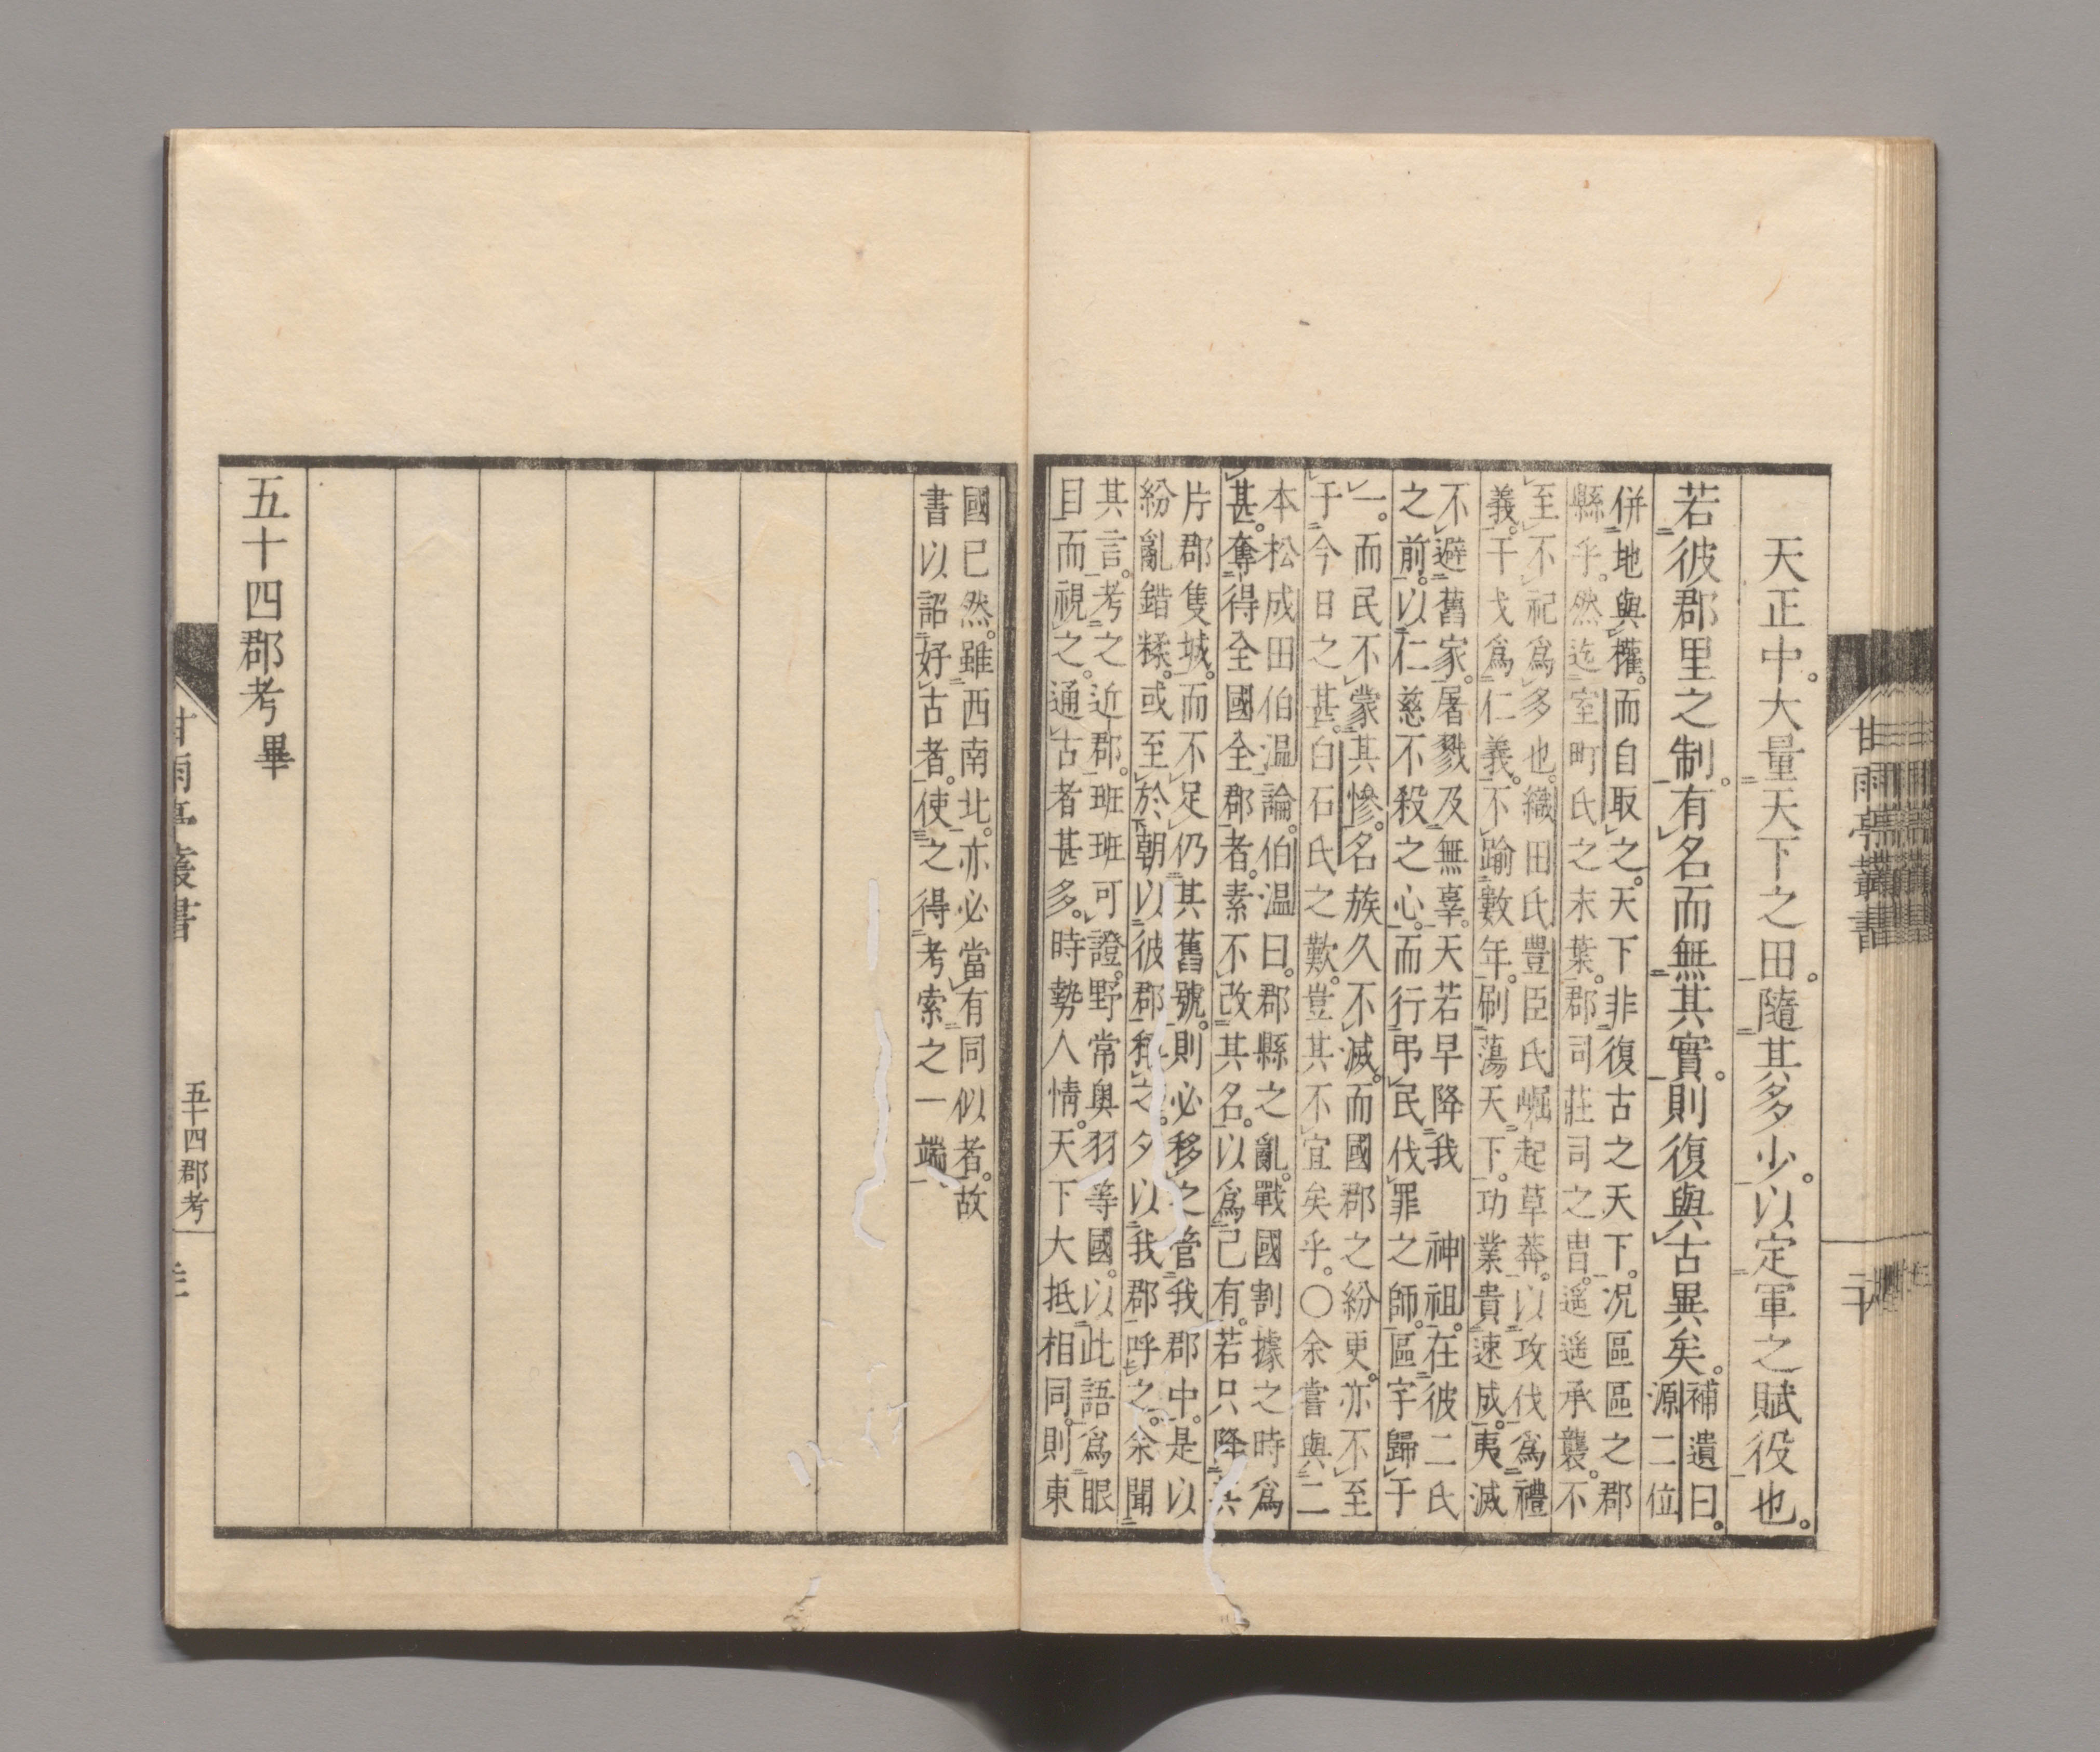 天正中。大量天下之田。隨其多少。以定軍之賦役也。
若彼郡里之制。有名而無其實。則復與古異矣。
補遺曰。
源二位
併地與權。而自取之。天下非復古之天下。況區區之郡
縣乎。然迄室町氏之末葉。郡司莊司之冑。遙遙承襲。不
至不祀爲多也。織田氏豐臣氏崛起草莽。以攻伐爲禮
義。干戈爲仁義。不踰數年。刷蕩天下。功業貴速成。夷滅
不避舊家。屠戮及無辜。天若早降我 神祖。在彼二氏
之前。以仁慈不殺之心。而行弔民伐罪之師。區宇歸于
一。而民不蒙其慘。名族久不滅。而國郡之紛更。亦不至
于今日之甚。白石氏之歎。豈其不宜矣乎。〇余嘗與二
本松成田伯温論。伯温曰。郡縣之亂。戰國割據之時爲
甚。奪得全國全郡者。素不改其名。以爲己有。若只降其
片郡隻城。而不足仍其舊號。則必移之管我郡中。是以
紛亂錯糅。或至於朝以彼郡稱之。夕以我郡呼之。余聞
其言。考之近郡。班班可證。野常奥羽等國。以此語爲眼
目而視之。通古者甚多。時勢人情。天下大抵相同。則東
國已然。雖西南北。亦必當有同似者。故
書以詔好古者。使之得考索之一端
五十四郡考畢
甘雨亭叢書
二十
甘雨亭叢書
五十四郡考